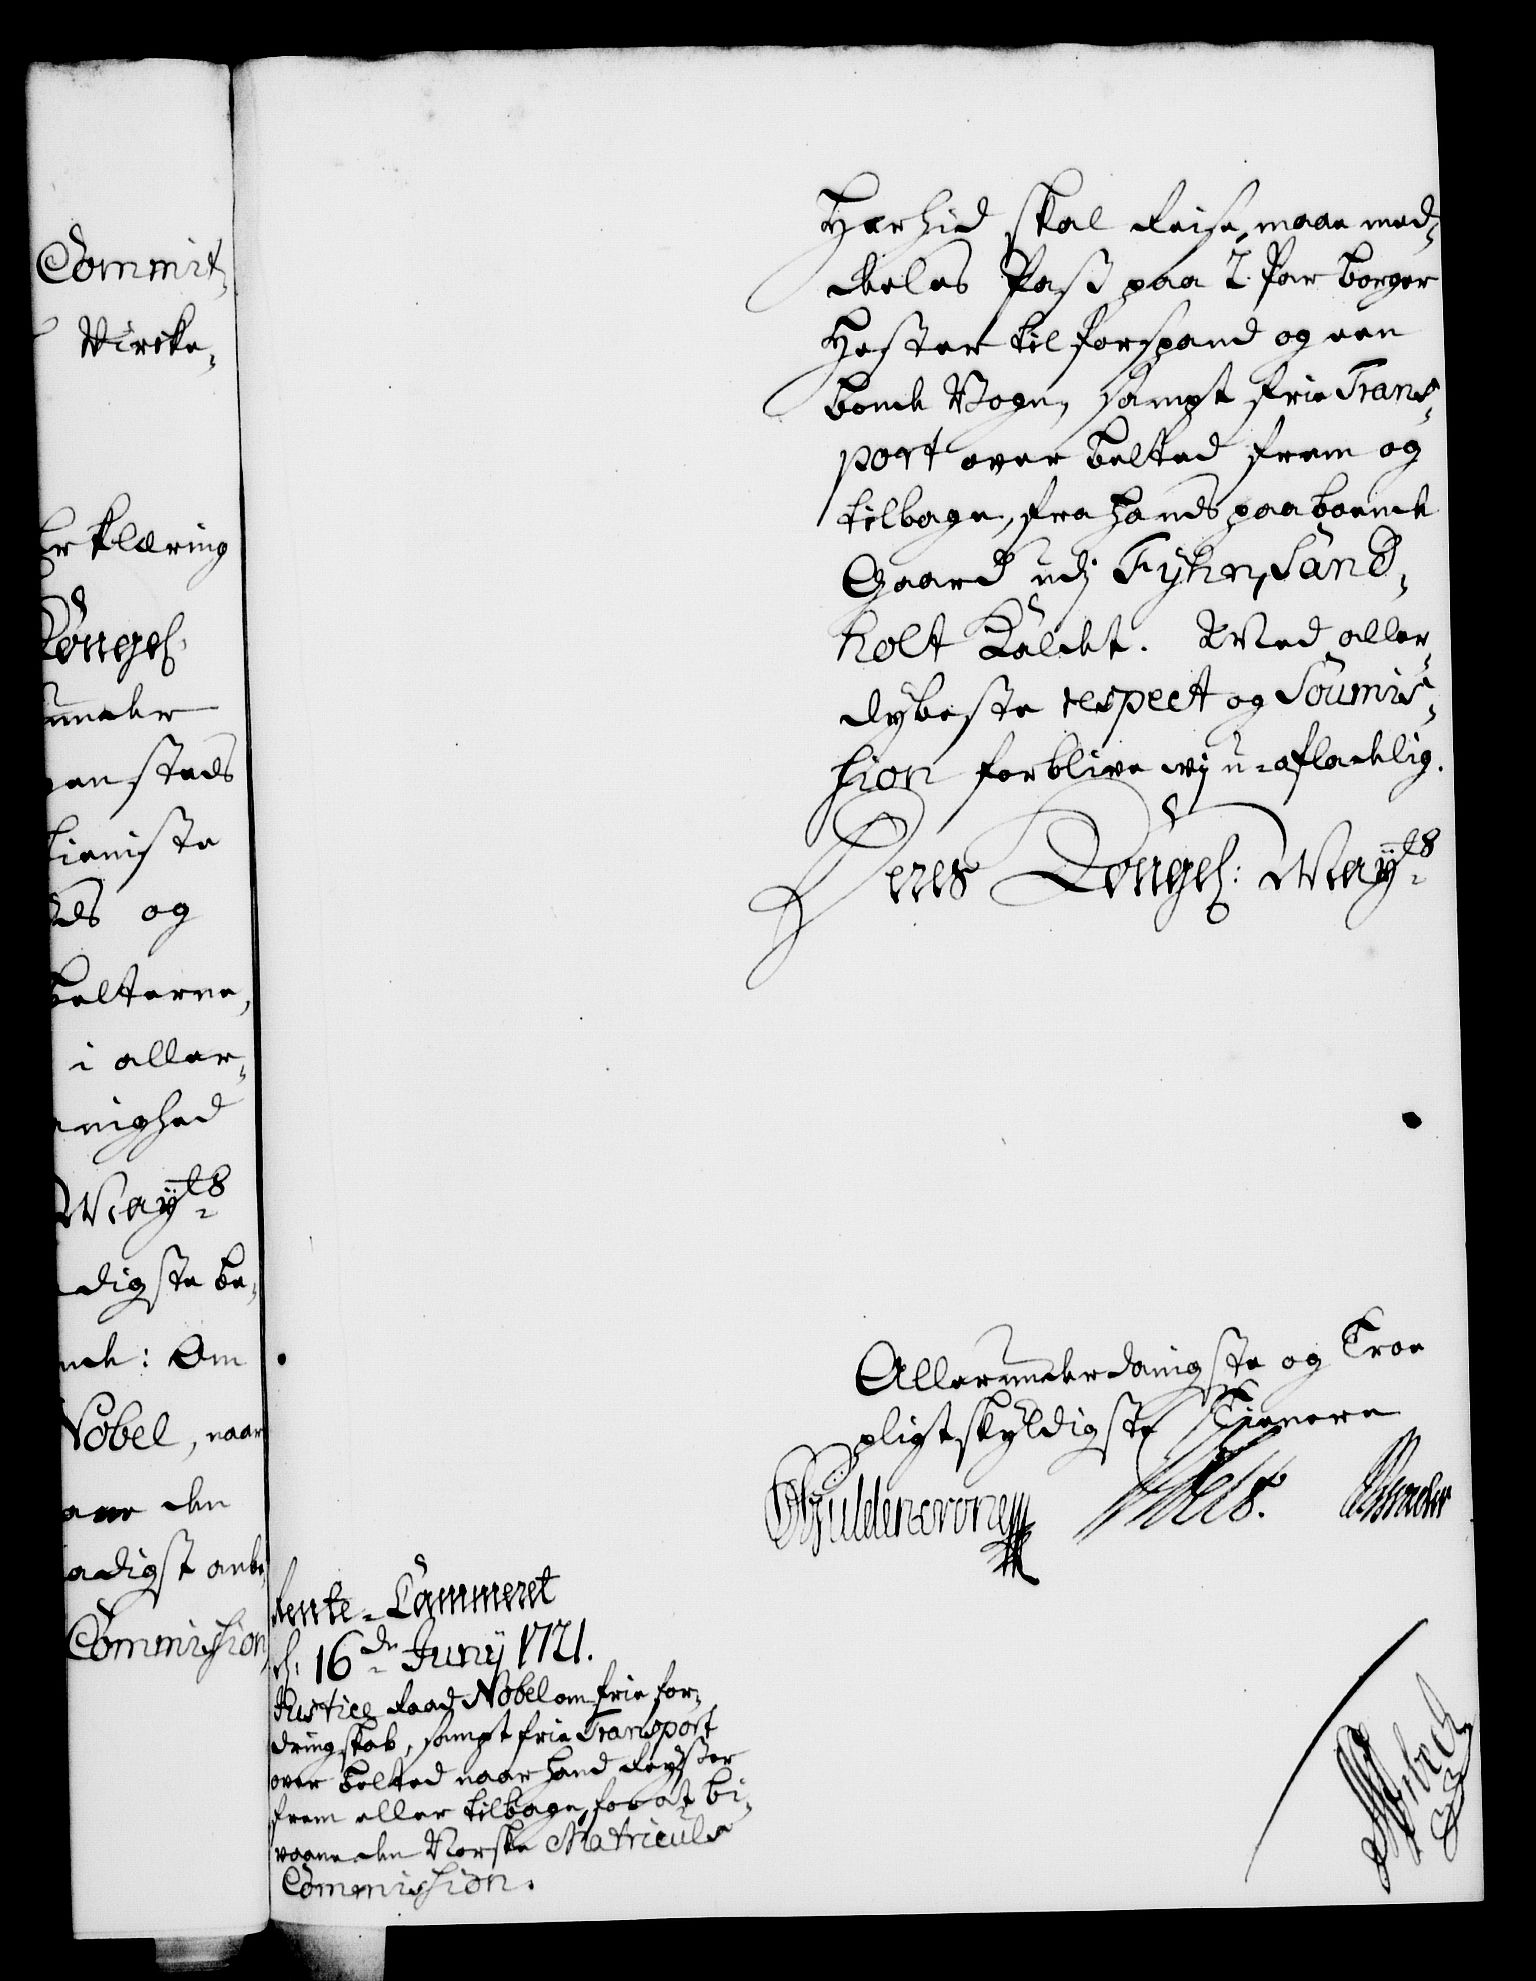 Commit¬
Wircke¬
Erklæring
Kongel:
unnder
gen steds
tieniste
ds og
Belterne,
i aller¬
nighed
May:ts
digste be¬
nde: Om
Nobel, naar
den
adigst anbe¬
Commission
Herhid skal Reise, maae med¬
deeles Pass paa 2 Par borger
Hester til forspand og een
bonde Vogn, sampt frie Trans¬
port over belted frem og
tilbage, fra hands paaboende
Gaard udj Fyhn, Sand¬
holt Kaldet. Med aller¬
dybeste respect og Soumis¬
sion forblive vj u-afladelig.
Deres Kongel: May:ts
Allerunderdanigste og Troe
pligtskyldigste Tienere
Güldencrone
Rente-Cammeret
d: 16de Junij 1721.
Justice Raad Nobel om frie for¬
dringskab, sampt frie Transport
over belted naar hand Reyser
frem eller tilbage, for at bi¬
vaane den Norske Matriculs
Commission.